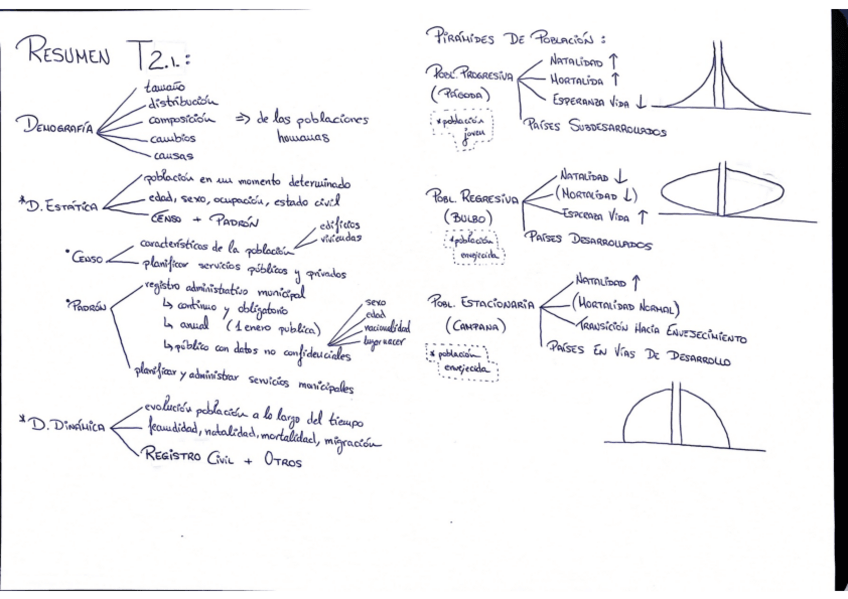 RESUMEN T2.1.:
DEMOGRAFÍA
tamaño
distribución
composición => de las poblaciones
humanas
cambios
causas
*D. ESTÁTICA
población en un momento determinado
edad, sexo, ocupación, estado civil
CENSO + PADRÓN
*CENSO
características de la población
edificios
viviendas
planificar servicios públicos y privados
*PADRÓN
registro administrativo municipal
↳ continuo y obligatorio
↳ anual (1 enero publica)
↳ público con datos no confidenciales
sexo
edad
nacionalidad
lugar nacer
planificar y administrar servicios municipales
*D. DINÁMICA
evolución población a lo largo del tiempo
fecundidad, natalidad, mortalidad, migración
REGISTRO CIVIL + OTROS
PIRÁMIDES DE POBLACIÓN:
POBL. PROGRESIVA
(PAGODA)
*población
joven
NATALIDAD ↑
MORTALIDA ↑
ESPERANZA VIDA ↓
PAÍSES SUBDESARROLLADOS
POBL. REGRESIVA
(BULBO)
*población
envejecida
NATALIDAD ↓
(MORTALIDAD ↓)
ESPERAZA VIDA ↑
PAÍSES DESARROLLADOS
POBL. ESTACIONARIA
(CAMPANA)
*población
envejecida
NATALIDAD ↑
(MORTALIDAD NORMAL)
TRANSICIÓN HACÍA ENVEJECIMIENTO
PAÍSES EN VÍAS DE DESARROLLO